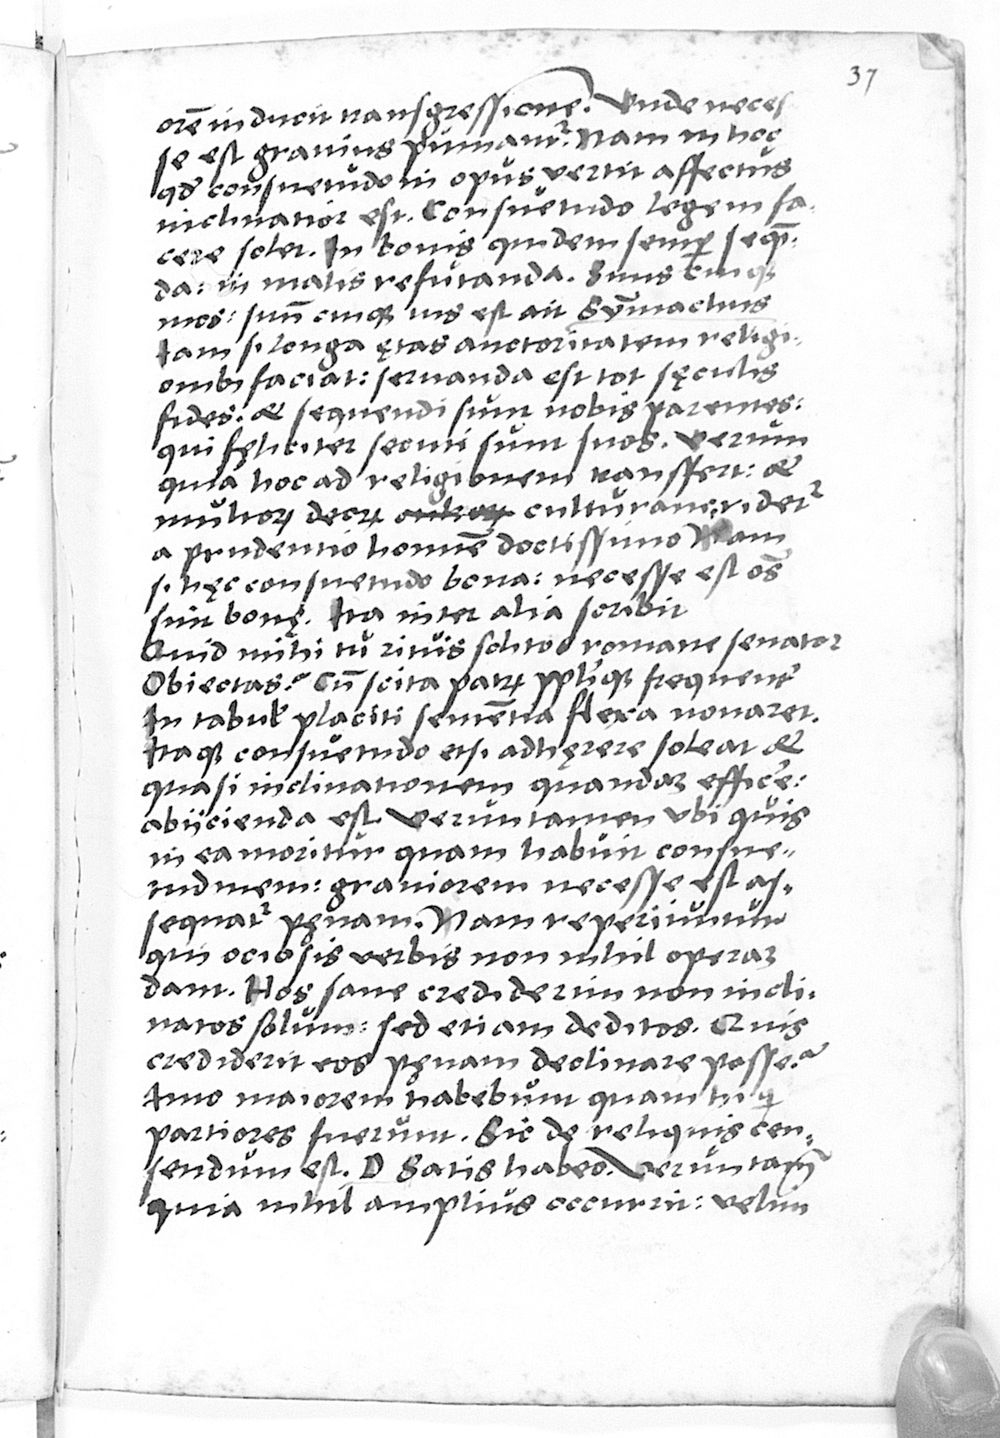 37
orē inducit transgressionē. Vnde neces
se est grauius puniant᷑. Nam in hoc
qđ consuetudo in opus vertit affectus
inclinatior est. Consuetudo legem fa-
cere solet. In bonis quidem semꝑ seqn̄-
da: in malis refutanda. Suus cuiqꝫ
mos: suū cuiqꝫ ius est ait Sȳmachus
Iam si longa ętas auctoritatem religi-
onibꝫ faciat: seruanda est tot sęculis
fides: & sequendi sunt nobis parentes:
qui fęliciter secuti sunt suos. Verum
quia hoc ad religionem transfert: &
multoꝝ deoꝝ culturam: ridet᷑
a prudentio homīe doctissimo Nam
si hęc consuetudo bona: necesse est oēs
sint bonę. Ita inter alia scribit
Quid mihi tu ritus solitos romane senator
Obiectas? Cū scita patꝝ ppliqꝫ frequent᷑
In tabul᷑ placiti sentētia flexa nouaret.
Itaqꝫ consuetudo etsi adhęrere soleat &
quasi inclinationem quandaꝫ efficē:
abijcienda est. Veruntamen vbi quis
in ea moritur quam habuit consue-
tudinem: grauiorem necesse est as-
sequat᷑ pęnam. Nam reperiuntur
qui ociosis verbis non nihil operaꝫ
dant. Hos sane crediderim non incli-
natos solum: sed etiam deditos. Quis
crediderit eos pęnam declinare posse?
Imo maiorem habebunt quam hi qͥ
partiores fuerunt. Sic de reliquis cen-
sendum est. D Satis habeo. Veruntam̄
quia nihil amplius occurrit: velim